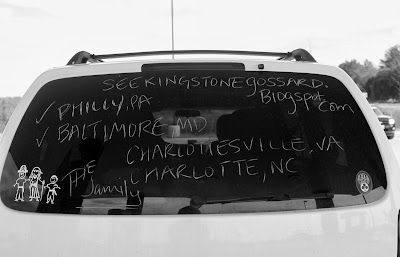 SEEKINGSTONEGOSSARD.
Blogspot.com
✓ PHILLY, PA
✓ BALTIMORE MD
CHARLOTTESVILLE, VA
CHARLOTTE, NC
THE
Jamily